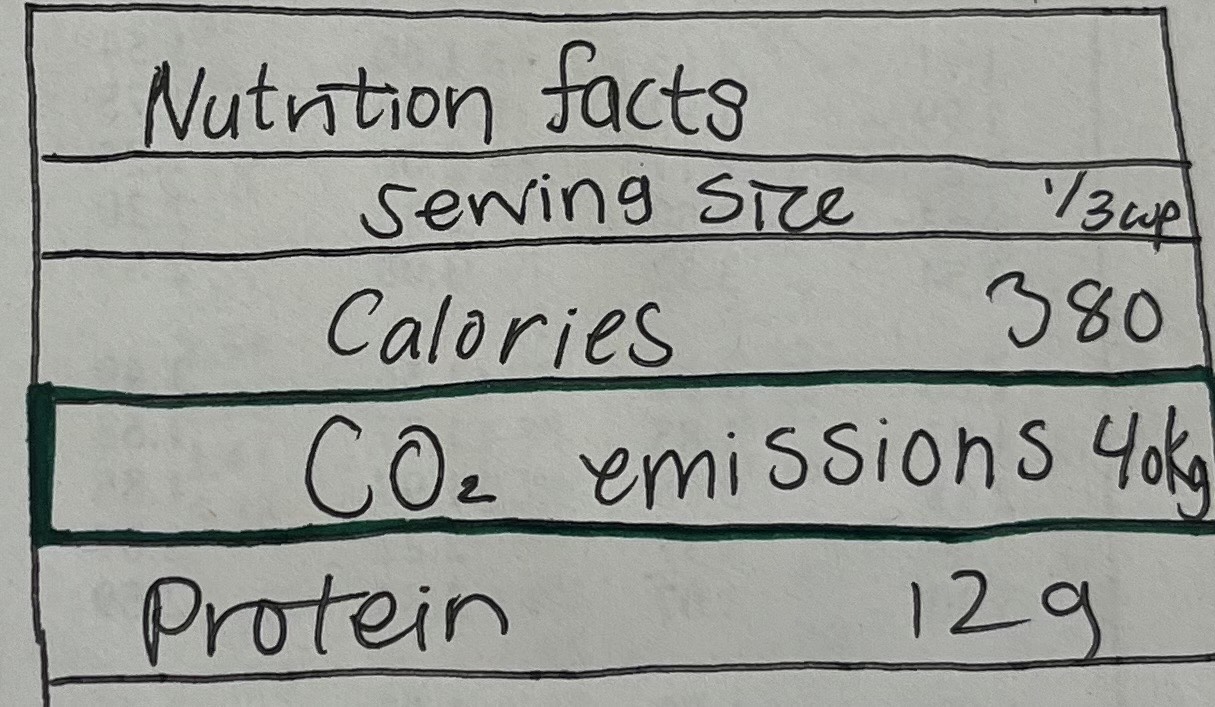 Nutrition facts
Serving size 1/3 cup
Calories 380
CO₂ emissions 40kg
Protein 12g